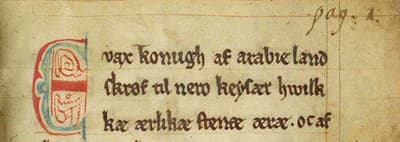 pag. 1.
Evax konugh af arabie land
skrøf til nero keysær hwilk
kæ ærlikæ stenæ æræ. oc af